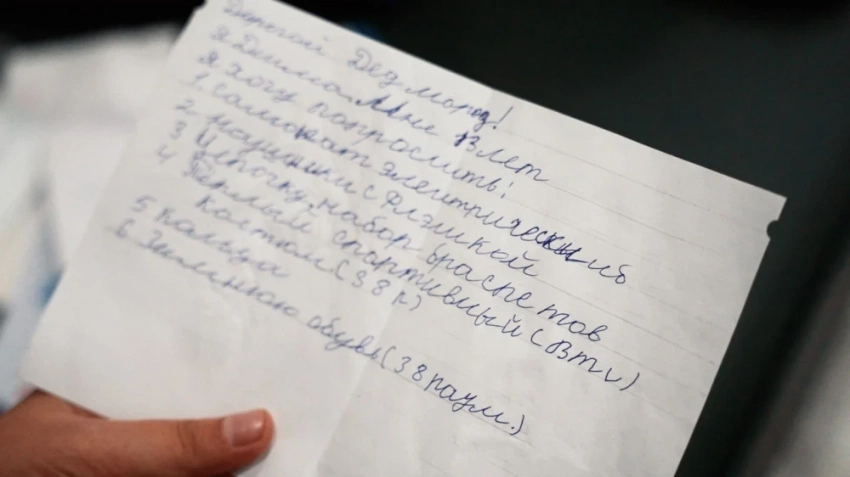 Дорогой Дед мороз!
Я Дима. Мне 13 лет
Я хочу попросить:
1. самокат электрический
2 наушники с флэшкой
3 Цепочку, набор браслетов
4 Тёплый спортивный (
костюм (38 р)
5 кольца
6 Зимнюю обувь (38 разм.)